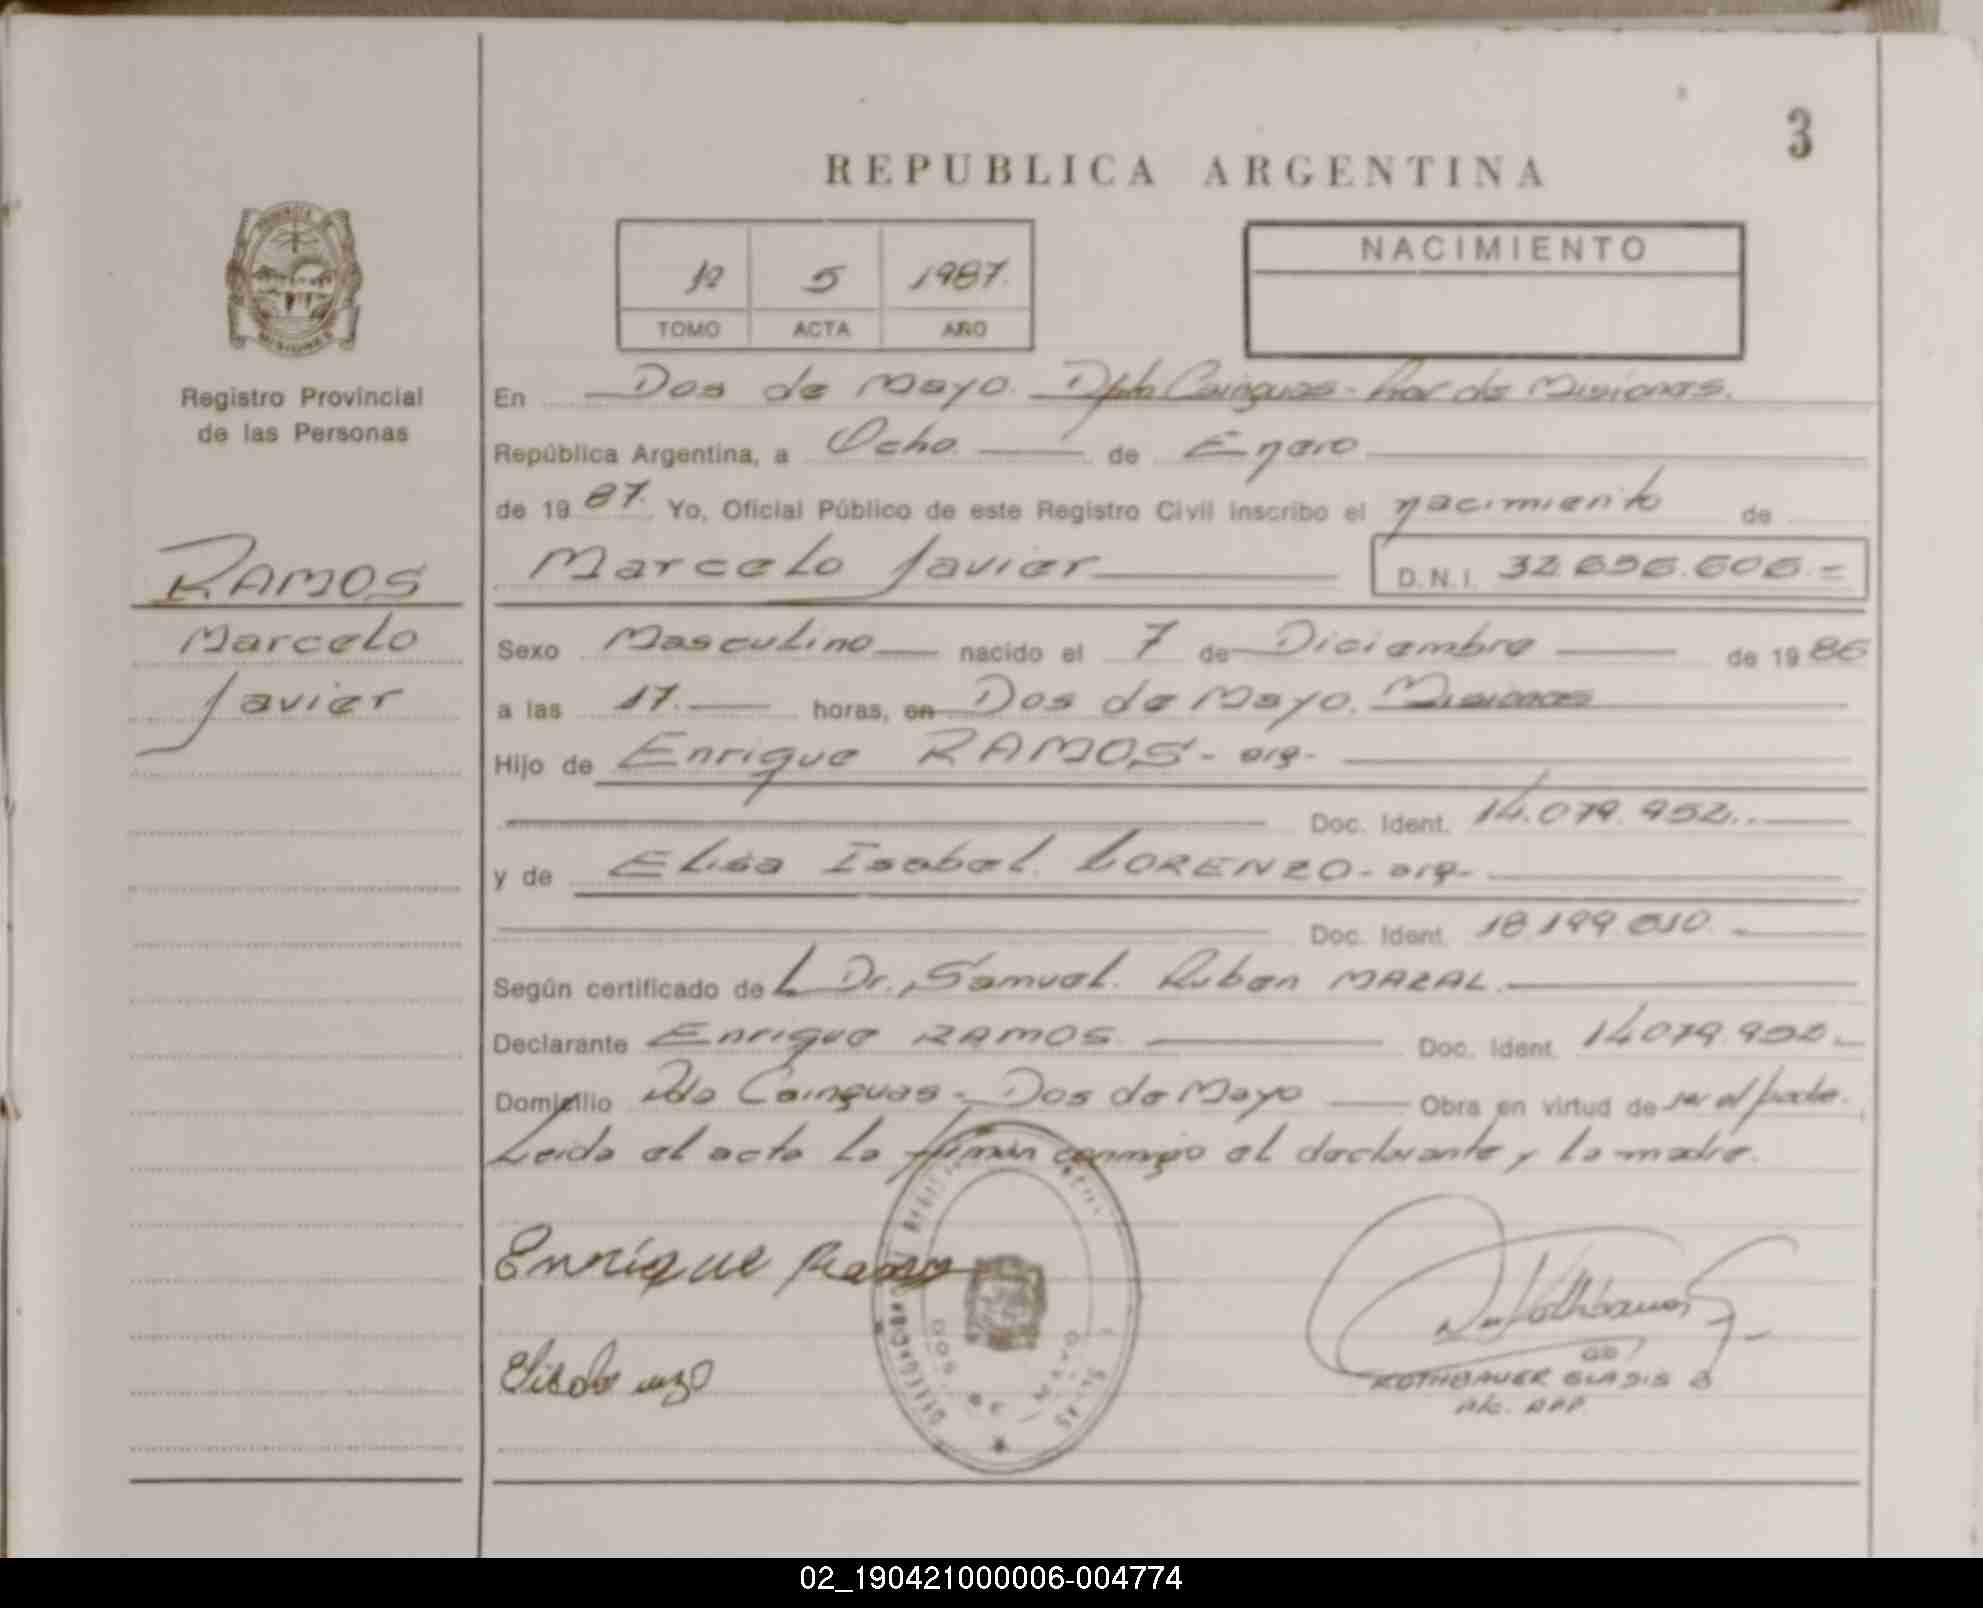 3
REPUBLICA ARGENTINA
5 1987.
TOMO ACTA AÑO
NACIMIENTO
Registro Provincial
de las Personas
RAMOS
Marcelo
Javier
En Dos de Mayo. Dpto Cainguas - de Misiones.
República Argentina, a Ocho de Enero
de 19 87. Yo, Oficial Público de este Registro Civil inscribo el nacimiento de
Marcelo Javier D.N.I.
Sexo Masculino nacido el 7 de Diciembre de 19 86
a las 17. horas, en Dos de Mayo. Misiones
Hijo de Enrique RAMOS - arg-
Doc. Ident. 14.079.952.
y de Elisa Isabel. LORENZO - arg-
Doc. Ident.
Según certificado de L Dr. Samuel. Ruben MAZAL.
Declarante Enrique RAMOS Doc. Ident. 14.079.952.
Domicilio Cainguas - Dos de Mayo Obra en virtud de ser el padre.
Leida el acta la firman conmigo el declarante y la madre.
Enrique Ramos
DOS DE MAYO
ROTHBAUER GLADIS
02_190421000006-004774